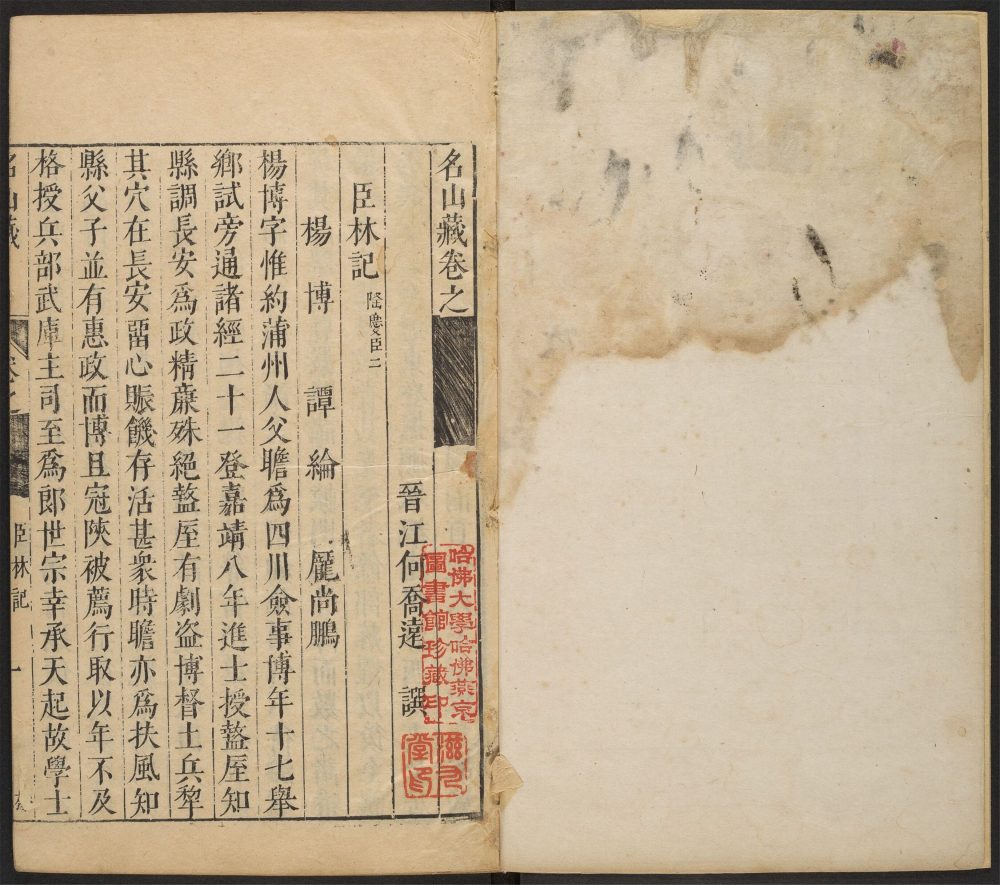 名山藏卷之
晉江何喬遠 譔
臣林記 隆慶臣二
楊博 譚綸 龐尚鵬
楊博字惟約蒲州人父瞻爲四川僉事博年十七舉
鄉試旁通諸經二十一登嘉靖八年進士授盩厔知
縣調長安爲政精廉殊絕盩厔有劇盜博督土兵犂
其穴在長安畱心賑饑存活甚衆時瞻亦爲扶風知
縣父子並有惠政而博且冠陝被薦行取以年不及
格授兵部武庫主司至爲郎世宗幸承天起故學士
名山藏
卷之
臣林記
一
哈佛大學哈佛燕京
圖書館珍藏印